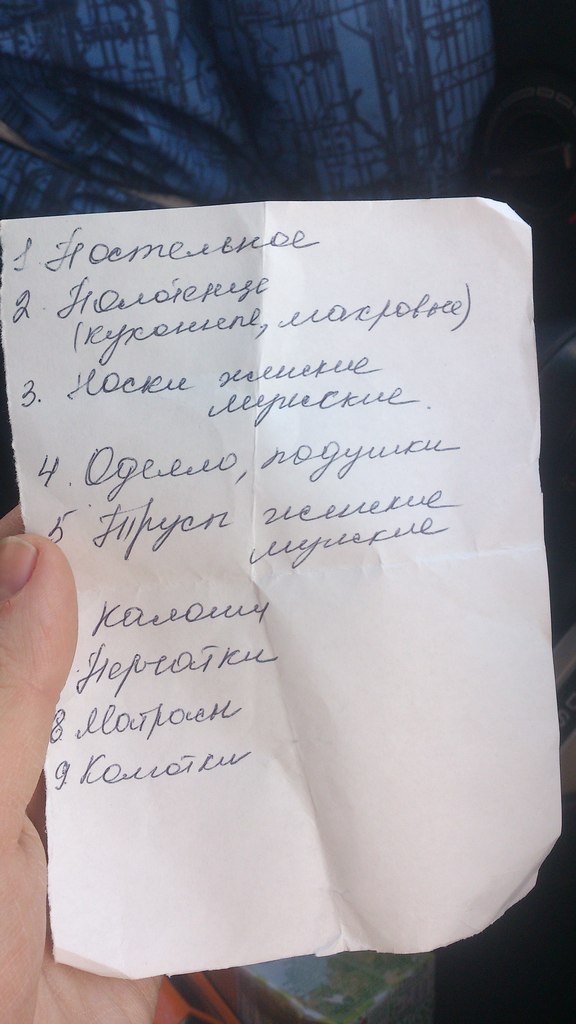 1 Постельное
2. Полотенце
(кухонные, махровые)
3. Носки женские
мужские.
4. Одеяло, подушки
5 Трусы женские
мужские
Калоши
Перчатки
8 Матрасы
9. Колготки